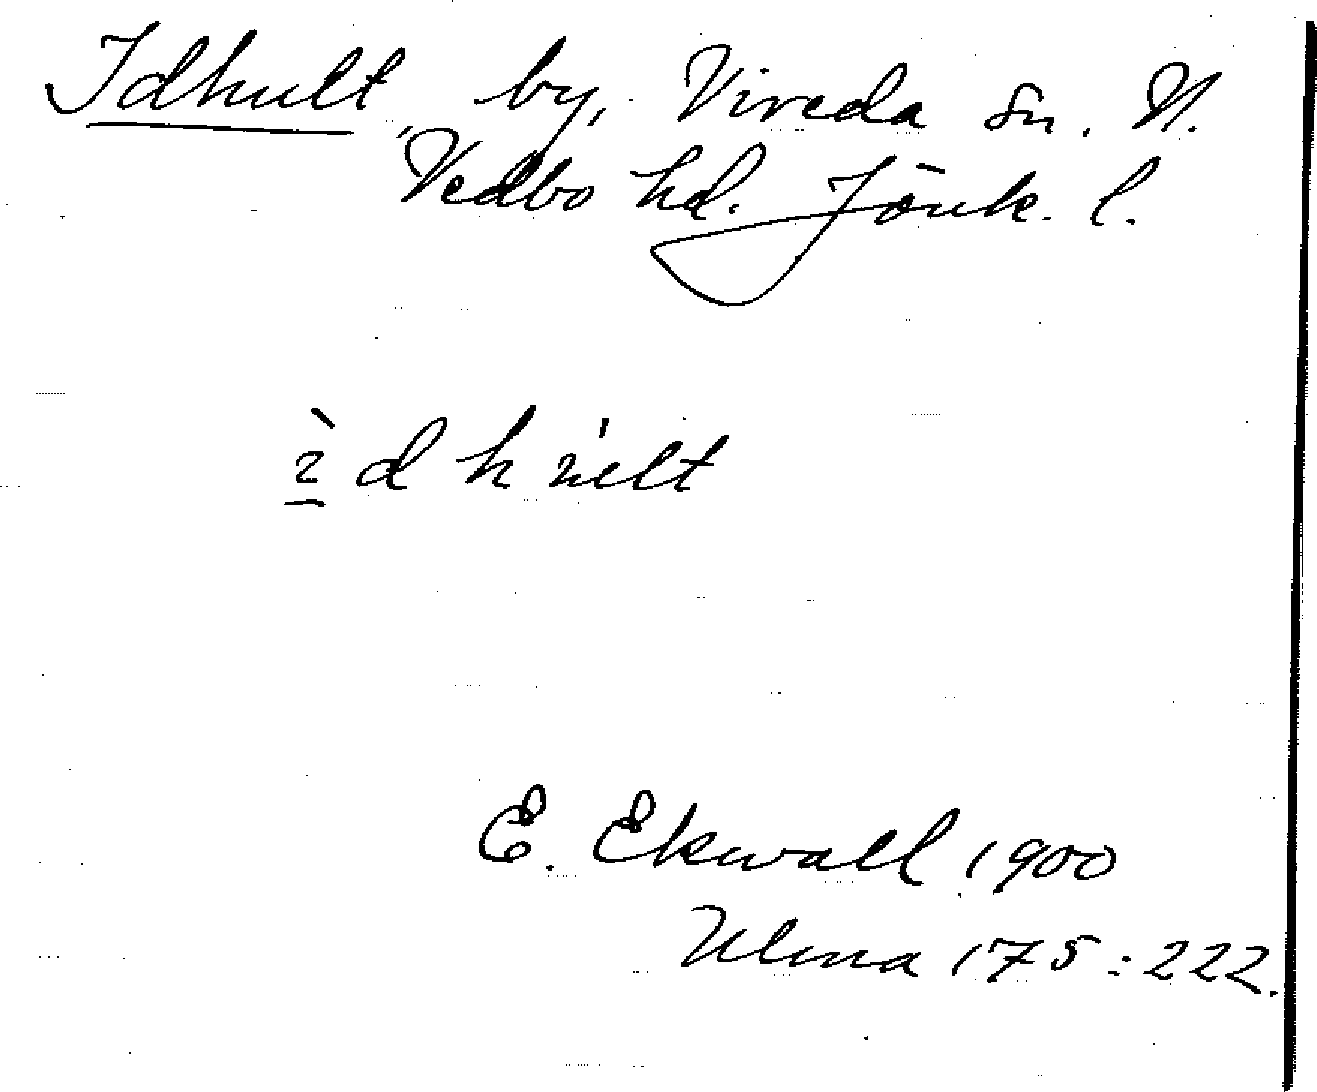 Idhult, by, Vireda sn. N.
Vedbo hd. Jönk. l.
E. Ekwall 1900
Ulma 175:222.